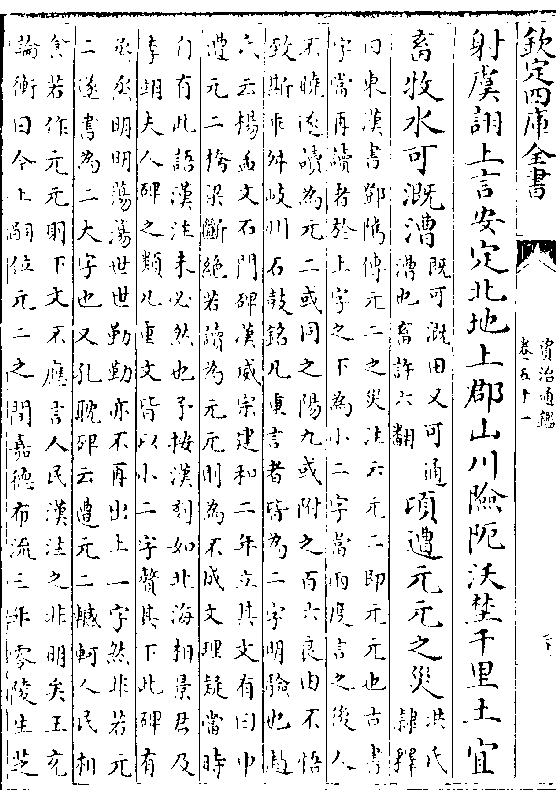 欽定四庫全書
資治通鑑
卷五十一
射虞詡上言安定北地上郡山川險阨沃埜千里土宜
畜牧水可溉漕
既可溉田又可通
漕也畜許六翻
頃遭元元之災
洪氏
隸釋
曰東漢書鄧隲傳元二之災注云元二即元元也古書
字當再讀者於上字之下為小二字當兩度言之後人
不曉遂讀為元二或同之陽九或附之百六良由不悟
致斯乖舛岐州石鼓銘凡重言者皆為二字明驗也趙
氏云楊孟文石門碑漢威宗建和二年立其文有曰中
遭元二橋梁斷絕若讀為元元則為不成文理疑當時
自有此語漢注未必然也予按漢刻如北海相景君及
李翊夫人碑之類凡重文皆以小二字贅其下此碑有
烝烝明明蕩蕩世世勤勤亦不再出上一字然非若元
二遂書為二大字也又孔耽碑云遭元二轗軻人民相
食若作元元則下文不應言人民漢注之非明矣王充
論衡曰今上嗣位元二之間嘉德布流三年零陵生芝